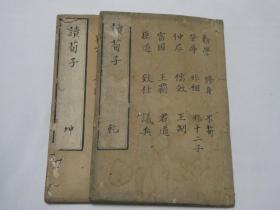 勸學 修身 不苟
榮辱 非相 非十二子
仲尼 儒效 王制
富國 王霸 君道
臣道 致仕 議兵
讀荀子 乾
讀荀子 坤